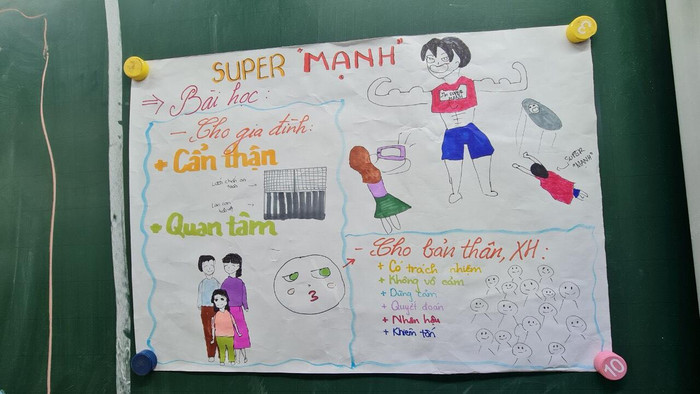 SUPER "MẠNH"
⇒ Bài học:
- Cho gia đình:
+ Cẩn thận
+ Quan tâm
SUPER
"MẠNH"
- Cho bản thân, XH:
+ Có trách nhiệm
+ Không vô cảm
+ Dũng cảm
+ Quyết đoán
+ Nhân hậu
+ Khiêm tốn
10